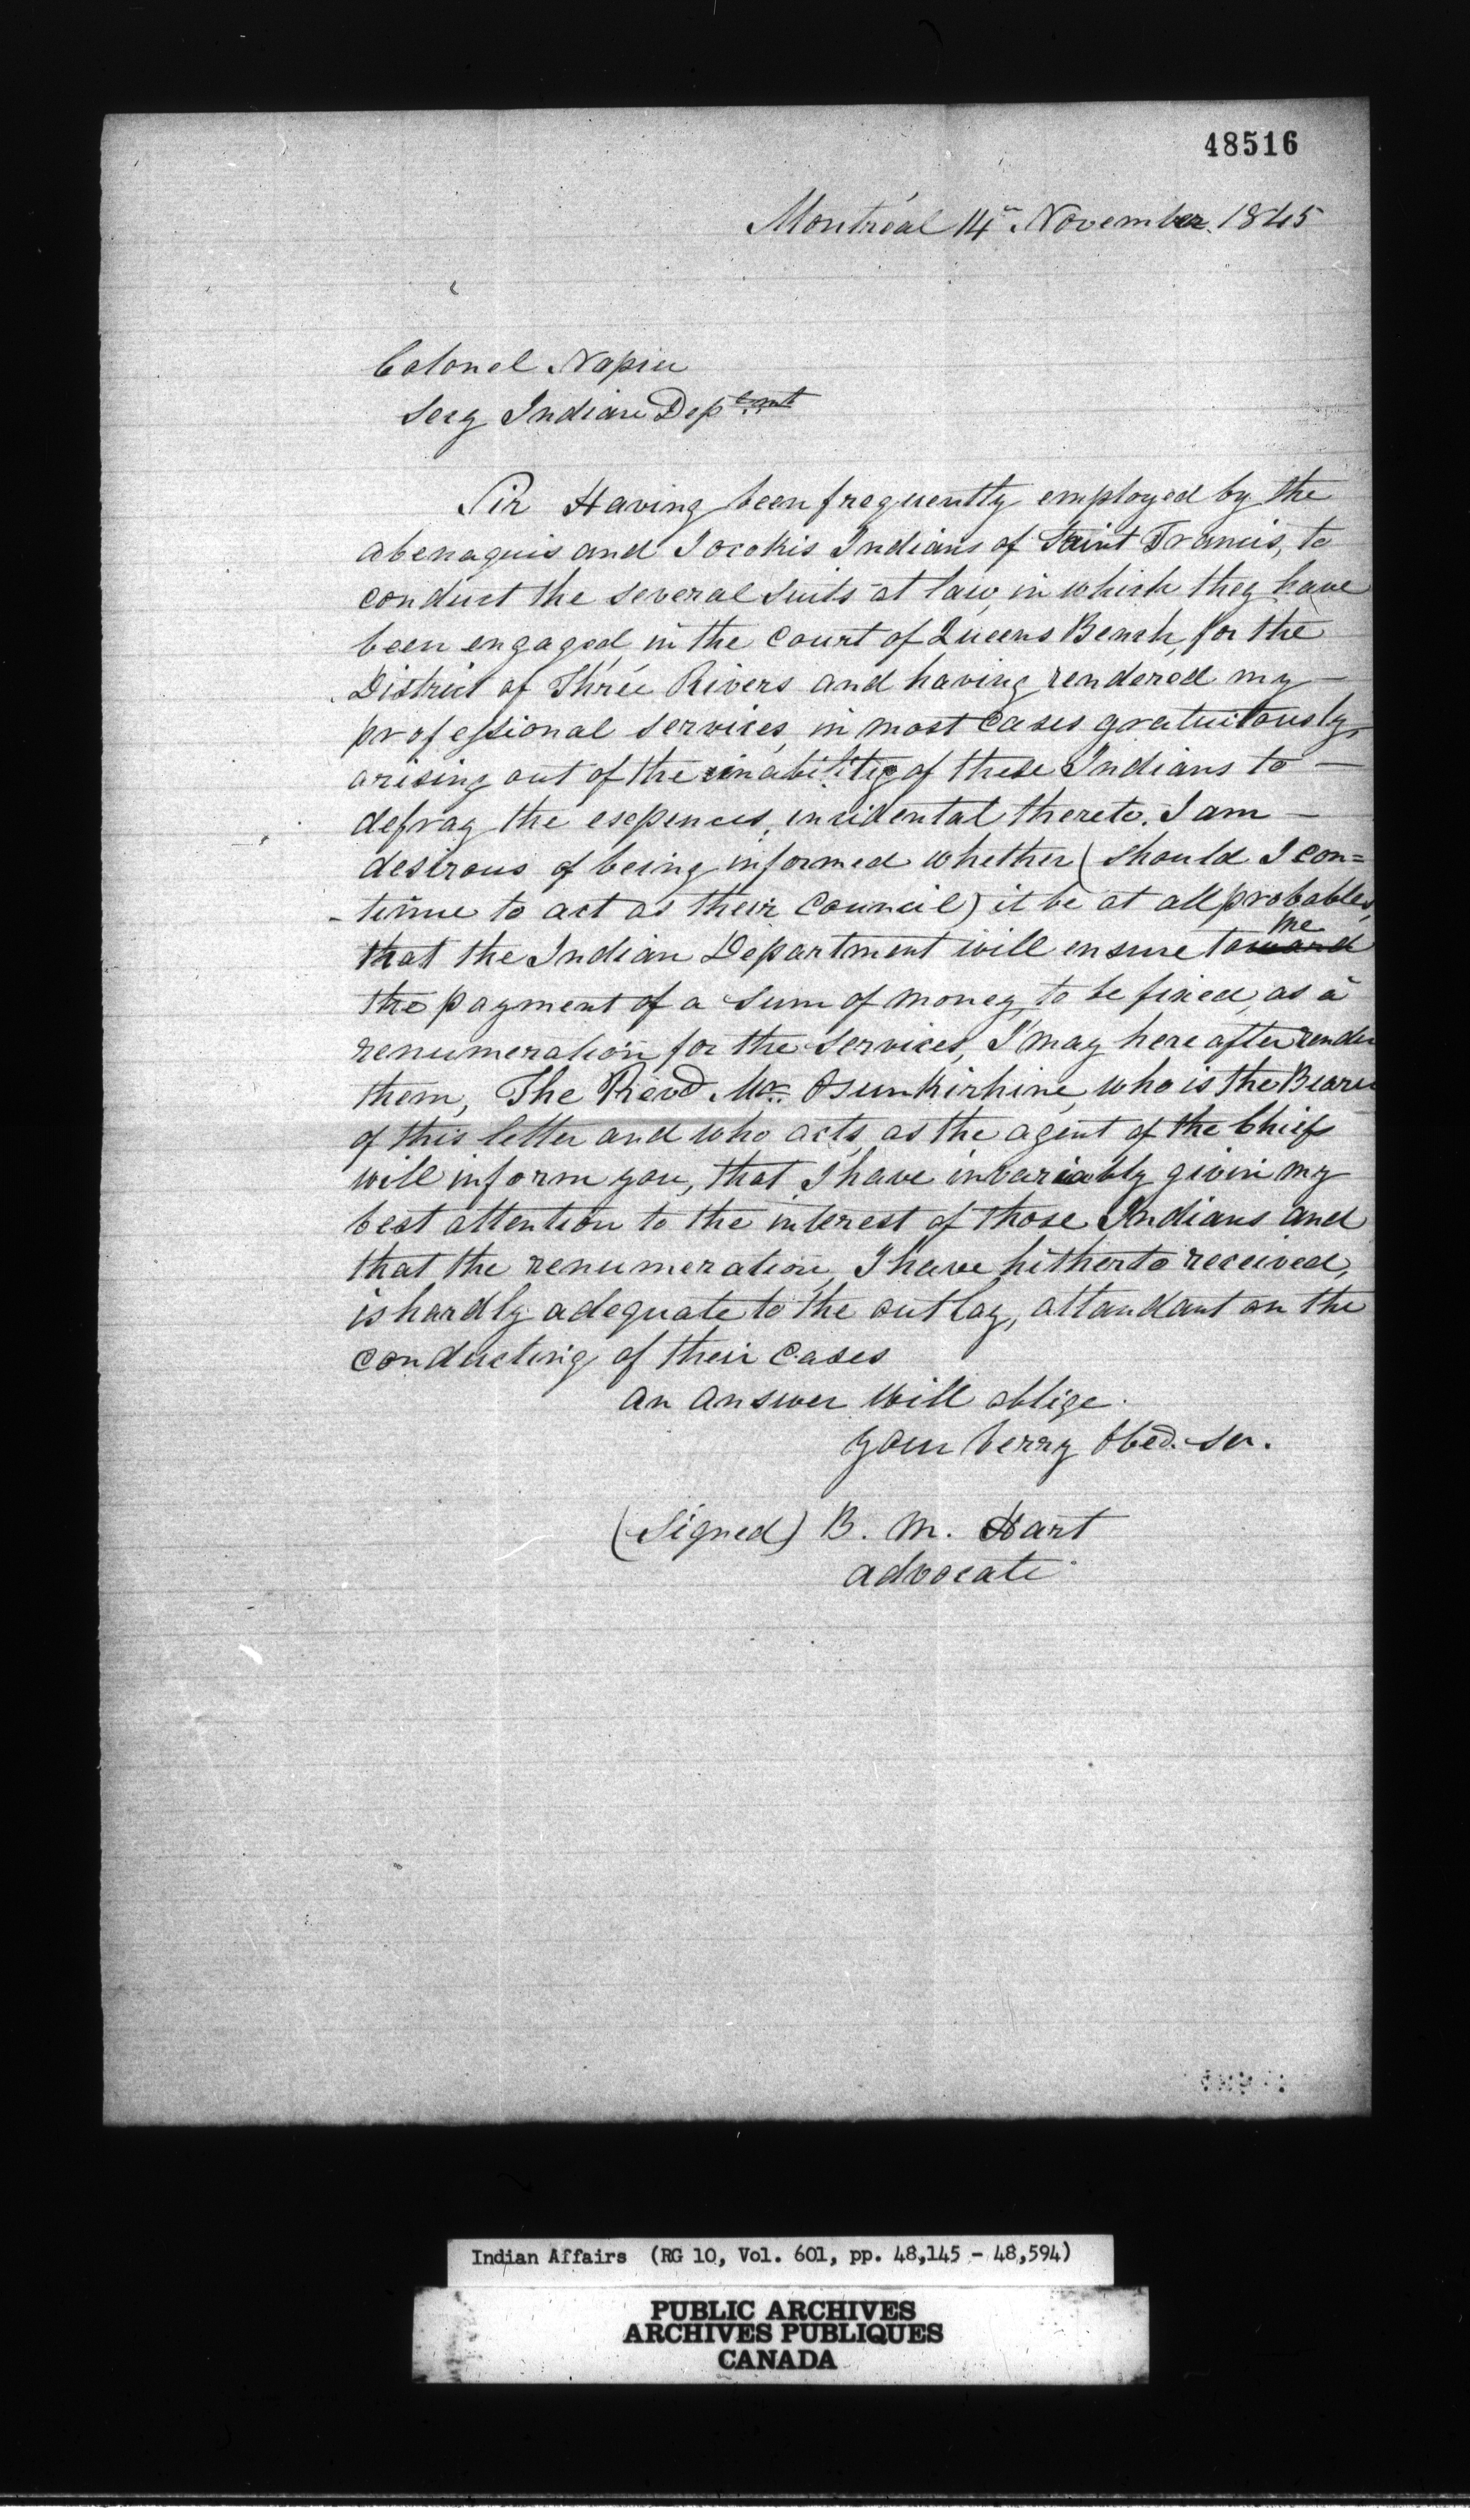 48516
Montréal 14th November. 1845
Colonel Napier
Secy Indian Depmt
Sir Having been frequently employed by the
abenaquis and Socokis Indians of Saint Francis, to
conduct the several suits at law, in which they have
been engaged, in the Court of Queens Bench, for the
District of Three Rivers and having rendered my —
professional services, in most cases gratuitously,
arising out of the inability of these Indians to —
defray the expences, incidental thereto. I am —
desirous of being informed whether (should I con=
-tinue to act as their Council) it be at all probable,
that the Indian Department will ensure to me
the payment of a sum of money, to be fixed, as a
renumeration for the services, I may hereafter render
them, The Revd. Mr. Osunkirhine, who is the Bearer
of this letter and who acts, as the agent of the Chiefs
will inform you, that I have invariably given my
best attention to the interest of those Indians and
that the renumeration, I have hitherto received,
is hardly adequate to the outlay, attandant on the
conducting of their cases
an answer will oblige.
your verry Obed. Ser.
(Signed) B. M. Hart
advocate
Indian Affairs (RG 10, Vol. 601, pp. 48,145 - 48,594)
PUBLIC ARCHIVES
ARCHIVES PUBLIQUES
CANADA